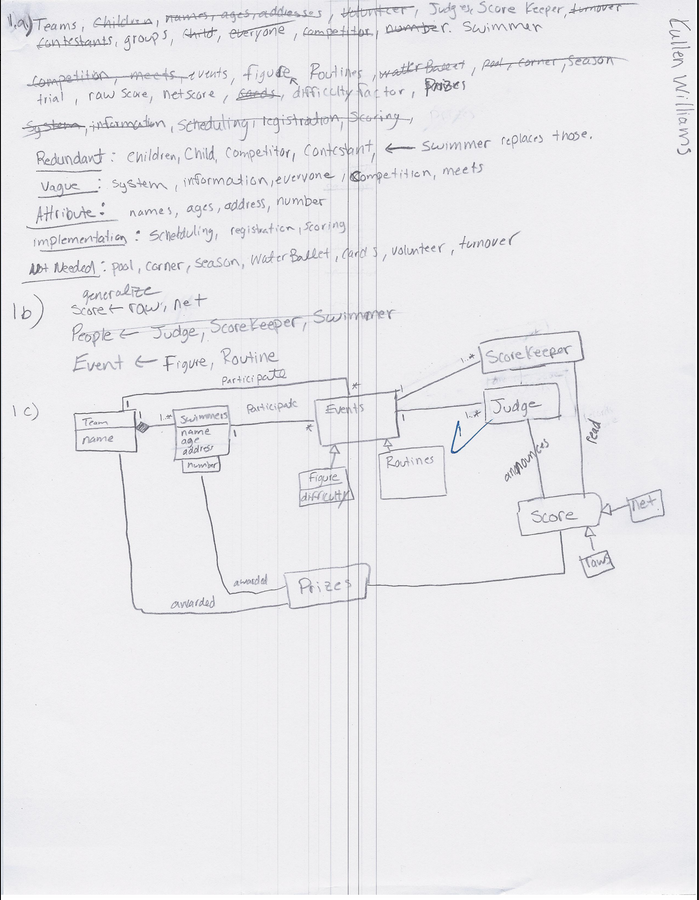 1.a) Teams, Children, names, ages, addresses, Volunteer, Judge, Score Keeper, turnover
Contestants, groups, child, everyone, competitor, number. Swimmer
competition, meets, events, figure, Routines, water Ballet, pool, corner, season
trial, raw score, net score, cards, difficulty factor, Prizes
System, information, scheduling, registration, Scoring,
Redundant: Children, Child, Competitor, Contestant, ← Swimmer replaces those.
Vague: system, information, everyone, Competition, meets
Attribute: names, ages, address, number
implementation: Scheduling, registration, scoring
Not Needed: pool, corner, season, Water Ballet, cards, volunteer, turnover
Kullen Williams
1b) generalize
Score ← raw, net
People ← Judge, ScoreKeeper, Swimmer
Event ← Figure, Routine
1c)
Participate
1
*
Team
name
1
1..*
Swimmers
name
age
address
number
Participate
1
*
Events
1
1..*
ScoreKeeper
1
1..*
Judge
Figure
difficulty
Routines
announces
read
Score
net
raw
Prizes
awarded
awarded